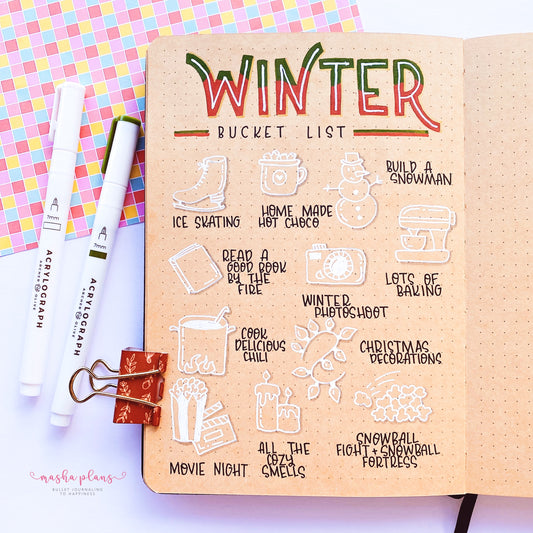 WINTER
BUCKET LIST
ICE SKATING
HOME MADE
HOT CHOCO
BUILD A
SNOWMAN
READ A
GOOD BOOK
BY THE
FIRE
WINTER
PHOTOSHOOT
LOTS OF
BAKING
COOK
DELICIOUS
CHILI
CHRISTMAS
DECORATIONS
MOVIE NIGHT
ALL THE
COZY
SMELLS
SNOWBALL
FIGHT + SNOWBALL
FORTRESS
1mm
ACRYLOGRAPH
ARCHER & OLIVE
1mm
ACRYLOGRAPH
ARCHER & OLIVE
masha plans
BULLET JOURNALING
TO HAPPINESS